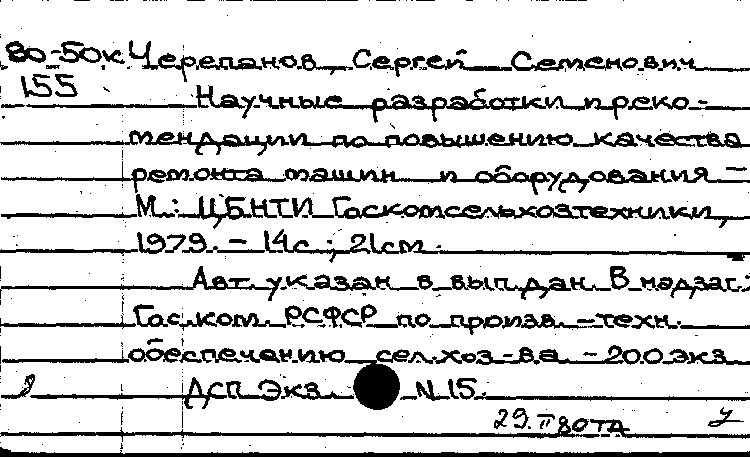 80-50к Черепанов, Сергей Семенович
155 Научные разработки и реко-
мендации по повышению качества
ремонта машин и оборудования –
М.: ЦБНТИ Госкомсельхозтехники,
1979. – 14с.; 21см.
Авт. указан в вып. дан. В надзаг.:
Гос. ком. РСФСР по произв.-техн.
обеспечению сел. хоз-ва. – 200 экз
ДСП Экз. N 15.
29.II 80